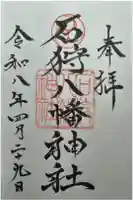 奉拝
石狩八幡神社
令和八年四月二十九日